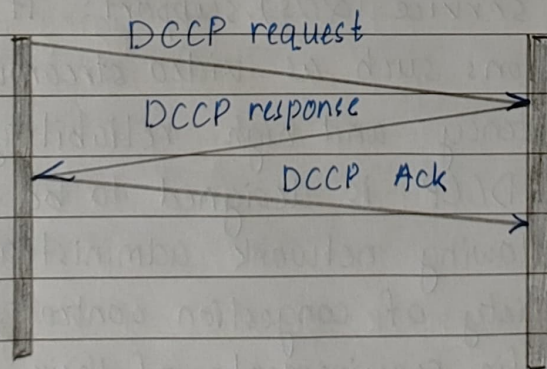 DCCP request
DCCP response
DCCP Ack